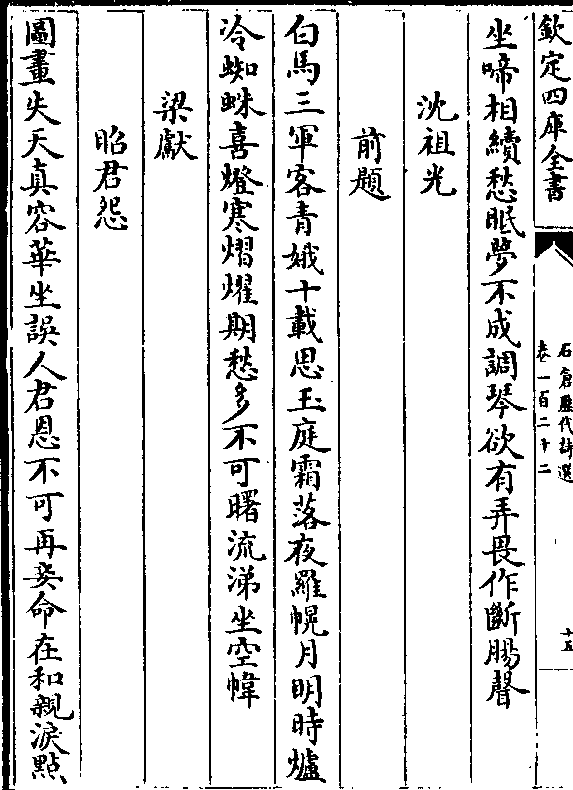 欽定四庫全書
石倉歷代詩選
卷一百二十二
十五
坐啼相續愁眠夢不成調琴欲有弄畏作斷腸聲
沈祖光
前題
白馬三軍客青娥十載思玉庭霜落夜羅幌月明時爐
冷蜘蛛喜燈寒熠燿期愁多不可曙流涕坐空幃
梁獻
昭君怨
圖畫失天真容華坐誤人君恩不可再妾命在和親淚點